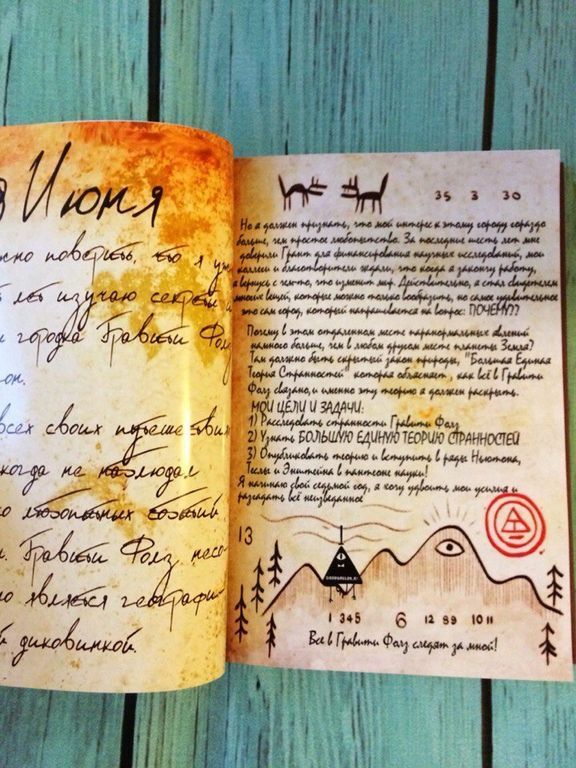 Июня
но поверить, что я уж
лет изучаю секреты и
городка Гравити Фолз
он.
всех своих путешествий
когда не наблюдал
о любопытных событий
. Гравити Фолз, несо-
о является географи-
й диковинкой.
35 3 30
Но я должен признать, что мой интерес к этому городу гораздо
больше, чем простое любопытство. За последние шесть лет мне
доверили Грант для финансирования научных исследований, мои
коллеги и благотворители ждали, что когда я закончу работу,
я вернусь с чем-то, что изменит мир. Действительно, я стал свидетелем
многих вещей, которые можно только вообразить, но самое удивительное
это сам город, который напрашивается на вопрос: ПОЧЕМУ??
Почему в этом отдаленном месте паранормальных явлений
намного больше, чем в любом другом месте планеты Земля?
Там должно быть скрытый закон природы, "Большая Единая
Теория Странностей" которая объясняет, как всё в Гравити
Фолз связано, и именно эту теорию я должен раскрыть.
МОИ ЦЕЛИ И ЗАДАЧИ:
1) Расследовать странности Гравити Фолз
2) Узнать БОЛЬШУЮ ЕДИНУЮ ТЕОРИЮ СТРАННОСТЕЙ
3) Опубликовать теорию и вступить в ряды Ньютона,
Теслы и Энштейна в пантеоне науки!
Я начинаю свой седьмой год, я хочу удвоить мои усилия и
разгадать всё неизведанное
13
1 345 6 12 89 10 11
Все в Гравити Фолз следят за мной!